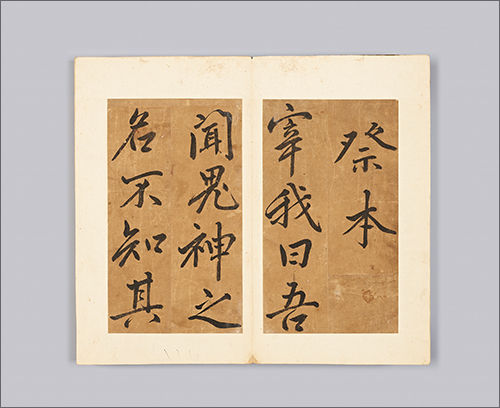 祭本
宰我曰吾
聞鬼神之
名不知其